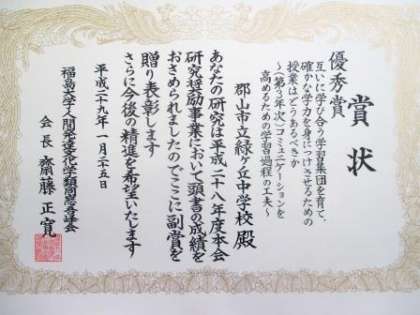 賞状
優秀賞
互いに学び合う学習集団を育て、
確かな学力を身につけさせるための
授業はどうあるべきか
～(第3年次)コミュニケーションを
高めるための学習過程の工夫～
郡山市立緑ヶ丘中学校殿
あなたの研究は平成二十八年度本会
研究奨励事業において頭書の成績を
おさめられましたのでここに副賞を
贈り表彰します
さらに今後の精進を希望いたします
平成二十九年一月二十五日
福島大学人間発達文化学類同窓会吾峰会
会長 齋藤正寛